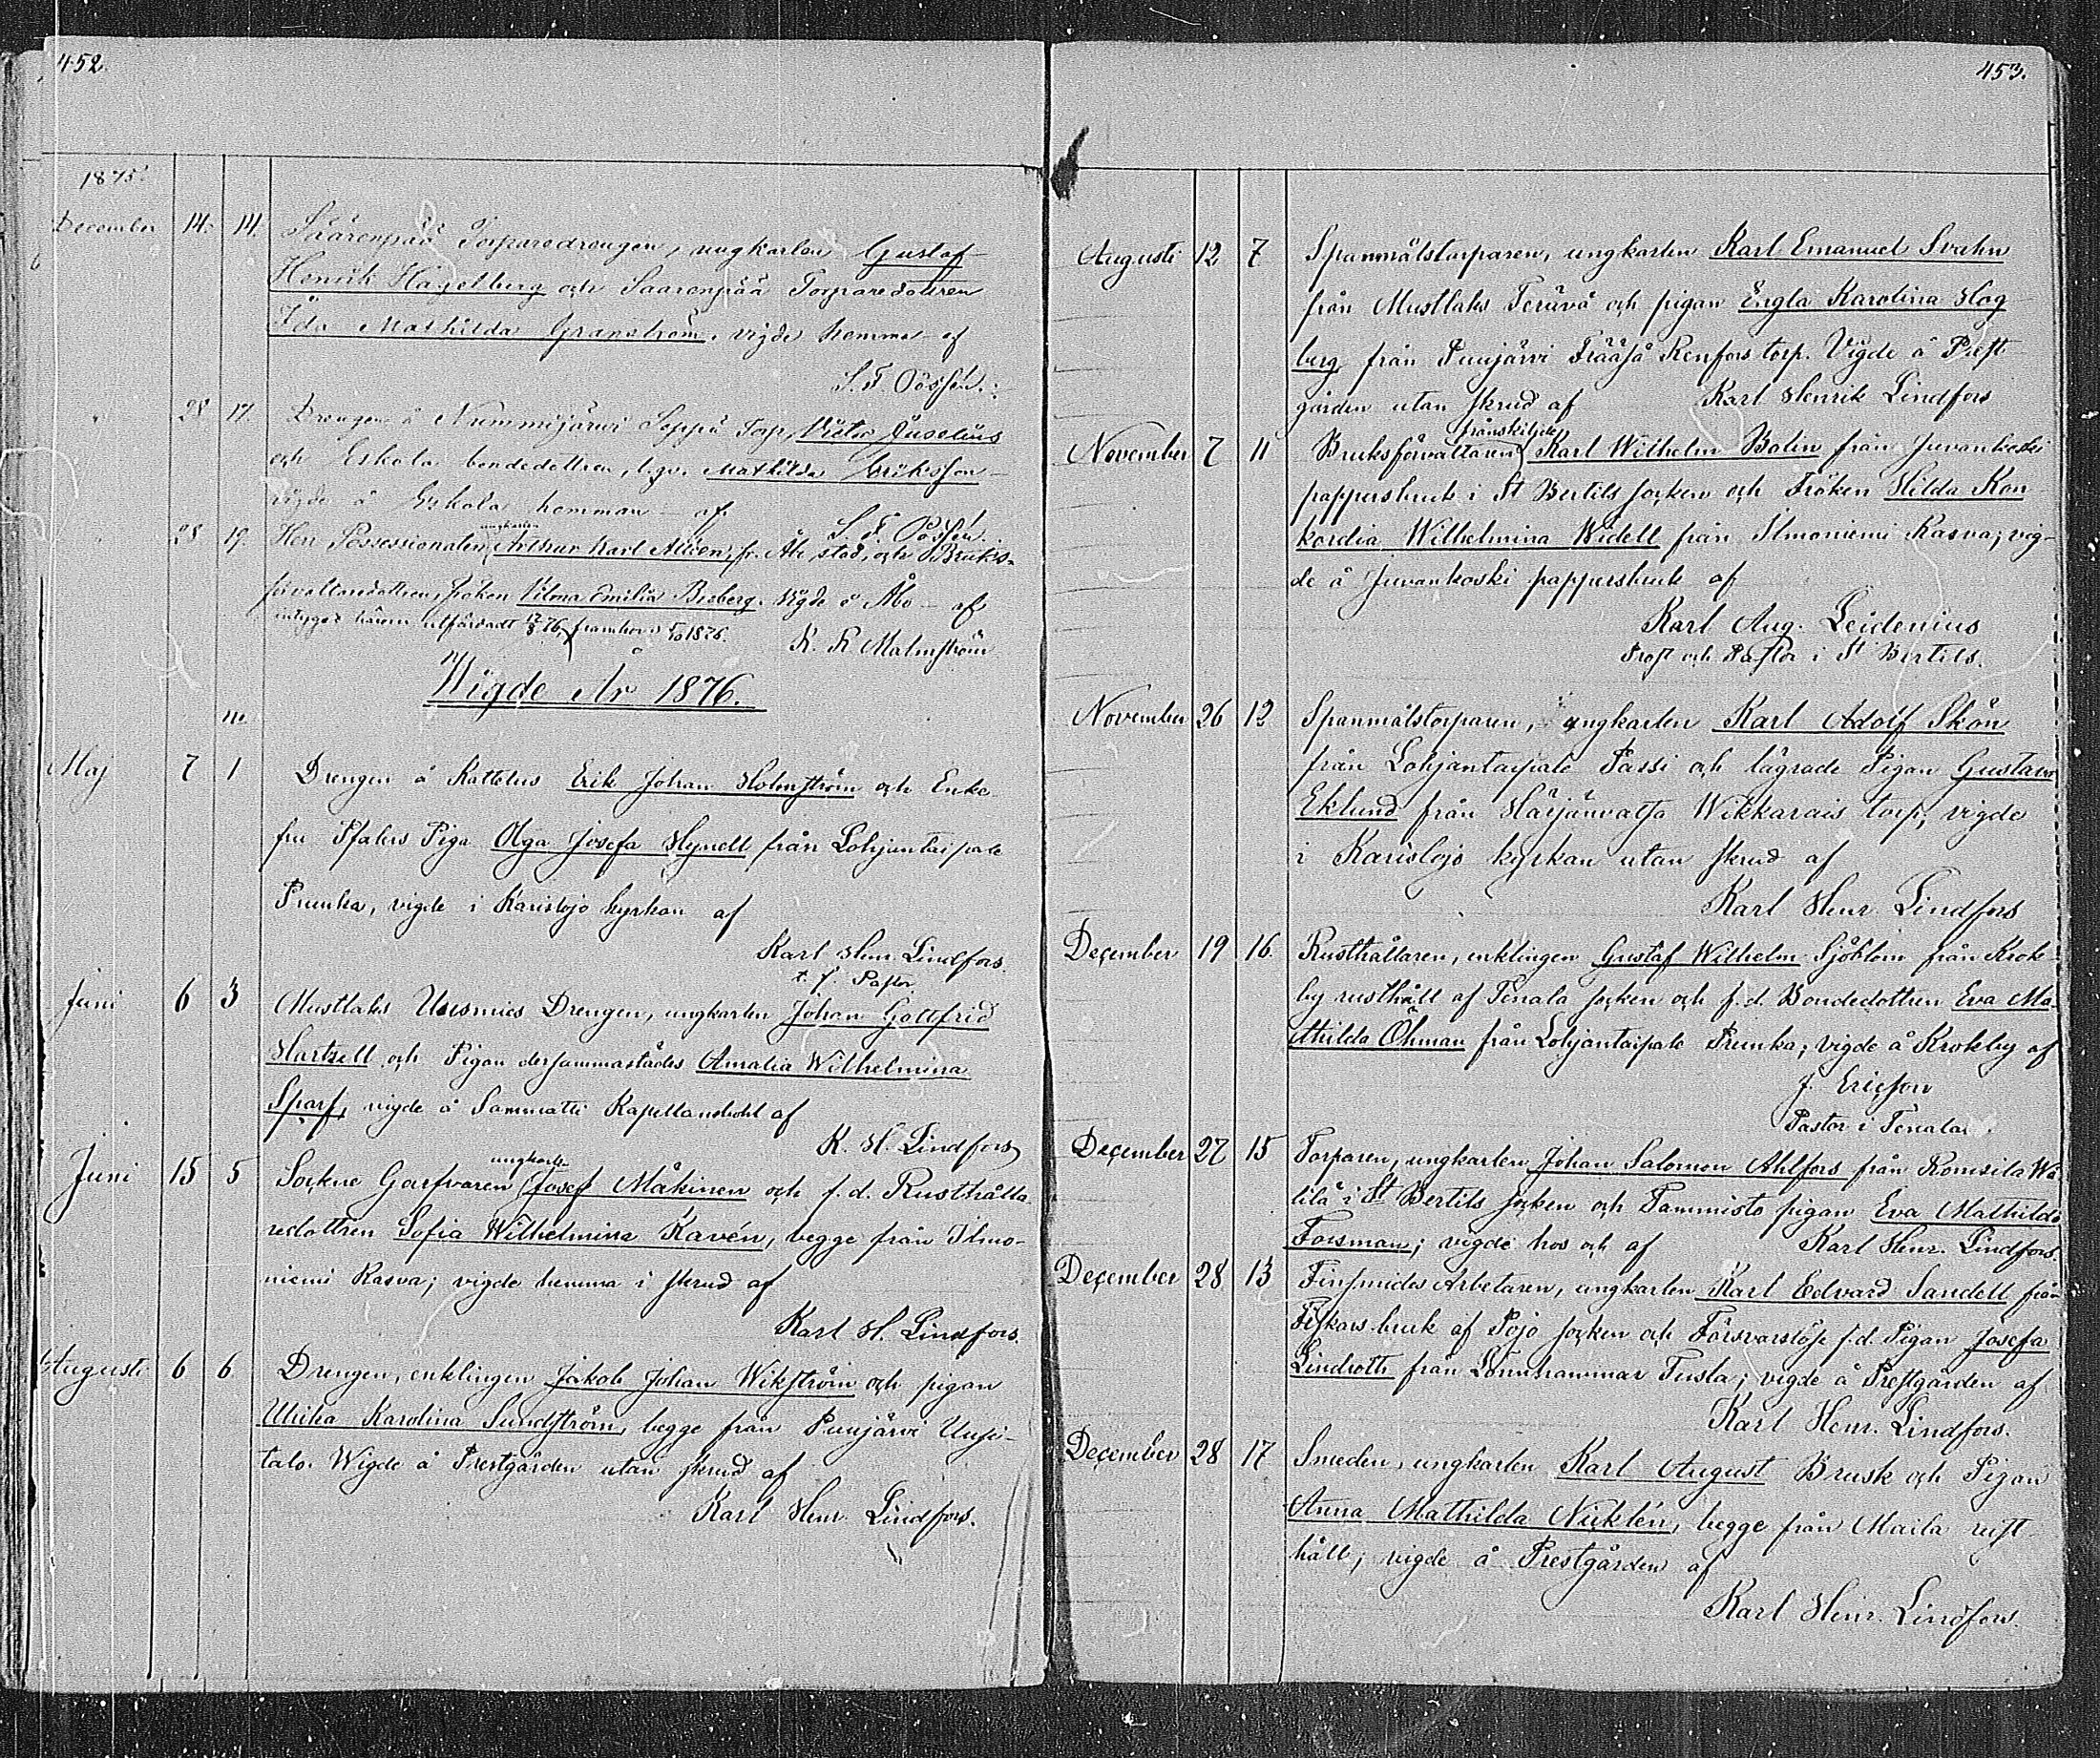 452.
1875.
December 14. 14. Säärenpää Torparedrengen, ungkarlen Gustaf
Henrik Hagelberg och Saarenpää Torparedottren
Ida Mathilda Granström, vigde hemma af
S. F. Possén.
" 28 17. Drengen å Nummijärvi Seppä Torp, Victor Auselius
och Eskola bondedottren, Mathilda Eriksson
vigde å Eskola hemman af
S. F. Possén.
ungkarlen
" 28 19. Herr Possessionaten, Arthur Karl Alléen, fr. Åbo stad, och Bruks-
förvaltaredottren, fröken Vilma Emilia Broberg. Vigde i Åbo af
intyget härom utfärdadt 12/3 76, framkom 5/10 1876. K. R. Malmström
Wigde År 1876.
no.
Maj 7 1 Drengen å Kattelus Erik Johan Holmström och Enke
fru Pfalers Piga Olga Josefa Hynell från Lohjantaipale
Prunka, vigde i Karislojo kyrkan af
Karl Henr. Lindfors.
t. f. Pastor
Juni 6 3 Mustlaks Uusmies Drengen, ungkarlen Johan Gottfrid
Hartzell och Pigan dersammastädes Amalia Wilhelmina
Sparf, vigde å Sammatti Kapellansbohl af
K. H. Lindfors
ungkarlen
Juni 15 5 Sockne Garfvaren Josef Mäkinen och f. d. Rusthålla
redottren Sofia Wilhelmina Kavén, begge från Ilmo-
niemi Kasva; vigde hemma i skrud af
Karl H. Lindfors.
Augusti 6 6 Drengen, enklingen Jakob Johan Wikström och pigan
Ulrika Karolina Sundström, begge från Puujärvi Uusi-
talo. Wigde å Prestgården utan skrud af
Karl Henr. Lindfors.
453.
Augusti 12 7 Spanmålstorparen, ungkarlen Karl Emanuel Svahn
från Mustlaks Terävä och pigan Engla Karolina Hag
berg från Puujärvi Träåsä Renfors torp. Vigde å Prest
gården utan skrud af Karl Henrik Lindfors
frånskiljde
November 7 11 Bruksförvaltaren Karl Wilhelm Bolin från Juvankoski
pappersbruk i St Bertils socken och Fröken Hilda Kon
kordia Wilhelmina Widell från Ilmoniemi Kasva; vig-
de å Juvankoski pappersbruk af
Karl Aug. Leidenius
Prost och Pastor i St Bertils.
November 26 12 Spanmålstorparen, ungkarlen Karl Adolf Skön
från Lohjantaipale Passi och lägrade Pigan Gustava
Eklund från Härjänvatsa Wikkarais torp; vigde
i Karislojo kyrkan utan skrud af
Karl Henr. Lindfors
December 19 16. Rusthållaren, enklingen Gustaf Wilhelm Sjöblom från Krok
by rusthåll af Tenala socken och f. d. Bondedottren Eva Ma
thilda Öhman från Lohjantaipale Prunka; vigde å Krokby af
J. Ericson
Pastor i Tenala.
December 27 15 Torparen, ungkarlen Johan Salomon Ahlfors från Romsila Wä
lilä i St Bertils socken och Tammisto pigan Eva Mathilda
Forsman; vigde hos och af Karl Henr. Lindfors.
December 28 13 Finsmides Arbetaren, ungkarlen Karl Edvard Sandell från
Fiskars bruk af Pojo socken och Försvarslöse f. d. Pigan Josefa
Lindroth från Lönnhammar Tusla; vigde å Prestgården af
Karl Henr. Lindfors.
December 28 17 Smeden, ungkarlen Karl August Brusk och Pigan
Anna Mathilda Nicklén, begge från Maila rust
håll; vigde å Prestgården af
Karl Henr. Lindfors.